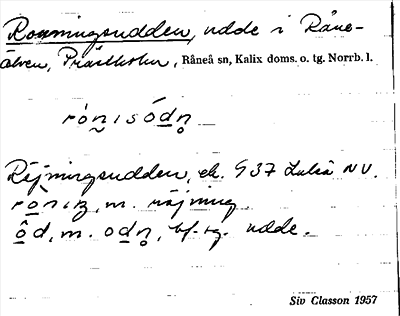 Romningsudden, udde i Råne-
älven, Prästholm, Råneå sn, Kalix doms. o. tg. Norrb. l.
Röjningsudden, ek. § 37 Luleå NV.
m. röjning
ôd, m. odn̥, bf. sg. udde.
Siv Classon 1957